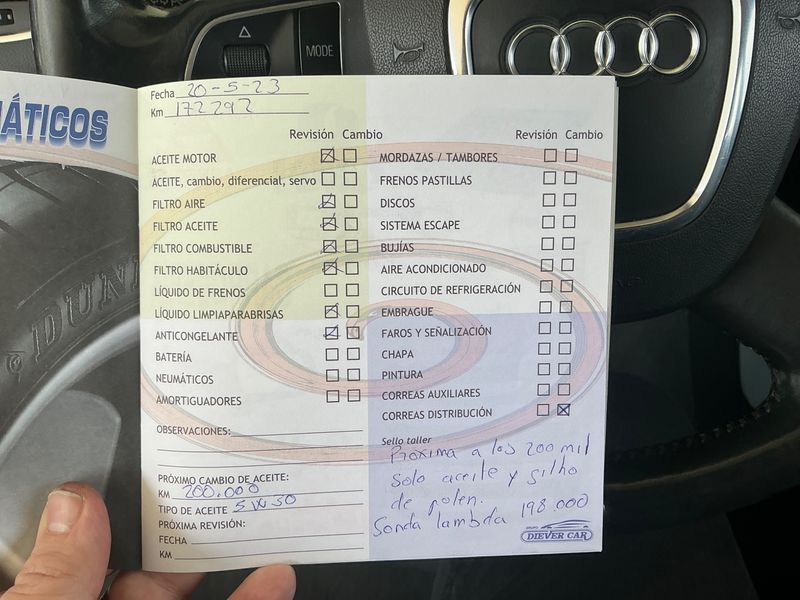 MODE
ÁTICOS
DUNL
Fecha 20-5-23
Km 172292
Revisión Cambio
ACEITE MOTOR
ACEITE, cambio, diferencial, servo
FILTRO AIRE
FILTRO ACEITE
FILTRO COMBUSTIBLE
FILTRO HABITÁCULO
LÍQUIDO DE FRENOS
LÍQUIDO LIMPIAPARABRISAS
ANTICONGELANTE
BATERÍA
NEUMÁTICOS
AMORTIGUADORES
OBSERVACIONES:
PRÓXIMO CAMBIO DE ACEITE:
KM 200.000
TIPO DE ACEITE 5W30
PRÓXIMA REVISIÓN:
FECHA
KM
Revisión Cambio
MORDAZAS / TAMBORES
FRENOS PASTILLAS
DISCOS
SISTEMA ESCAPE
BUJÍAS
AIRE ACONDICIONADO
CIRCUITO DE REFRIGERACIÓN
EMBRAGUE
FAROS Y SEÑALIZACIÓN
CHAPA
PINTURA
CORREAS AUXILIARES
CORREAS DISTRIBUCIÓN
Sello taller
Próxima a los 200 mil
solo aceite y filtro
de polen.
Sonda lambda 198.000
GRUPO
DIEVER CAR